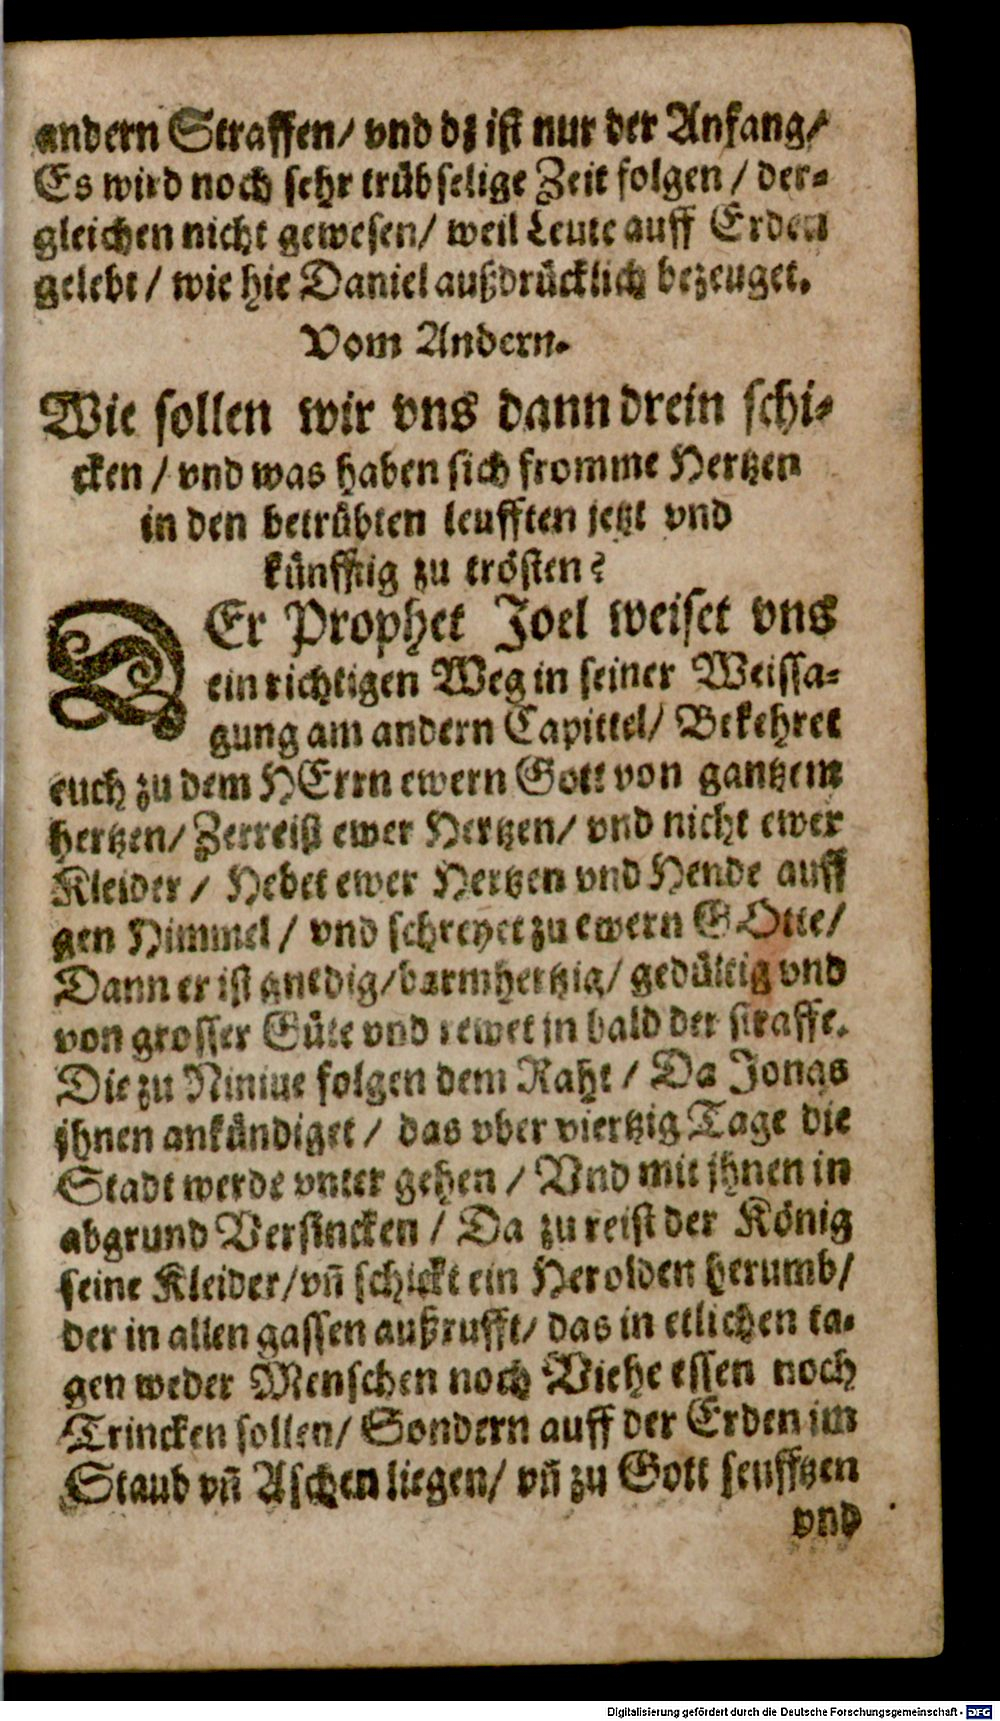 andern Straffen/ vnd dz ist nur der Anfang/
Es wird noch sehr trübselige Zeit folgen / der-
gleichen nicht gewesen/ weil Leute auff Erden
gelebt / wie hie Daniel außdrücklich bezeuget.
Vom Andern.
Wie sollen wir vns dann drein schi-
cken / vnd was haben sich fromme Hertzen
in den betrübten leufften jetzt vnd
künfftig zu trösten?
DEr Prophet Joel weiset vns
ein richtigen Weg in seiner Weissa-
gung am andern Capittel/ Bekehret
euch zu dem HErrn ewern Gott von gantzem
hertzen/ Zerreist ewer Hertzen/ vnd nicht ewer
Kleider / Hebet ewer Hertzen vnd Hende auff
gen Himmel / vnd schreyet zu ewern GOtte/
Dann er ist gnedig/ barmhertzig/ gedültig vnd
von grosser Güte vnd rewet jn bald der straffe.
Die zu Niniue folgen dem Raht / Da Jonas
jhnen ankündiget / das vber viertzig Tage die
Stadt werde vnter gehen / Vnd mit jhnen in
abgrund Versincken / Da zu reist der König
seine Kleider/ vñ schickt ein Herolden herumb/
der in allen gassen außrufft/ das in etlichen ta-
gen weder Menschen noch Viehe essen noch
Trincken sollen/ Sondern auff der Erden im
Staub vñ Aschen liegen/ vñ zu Gott seufftzen
vnd
Digitalisierung gefördert durch die Deutsche Forschungsgemeinschaft - DFG